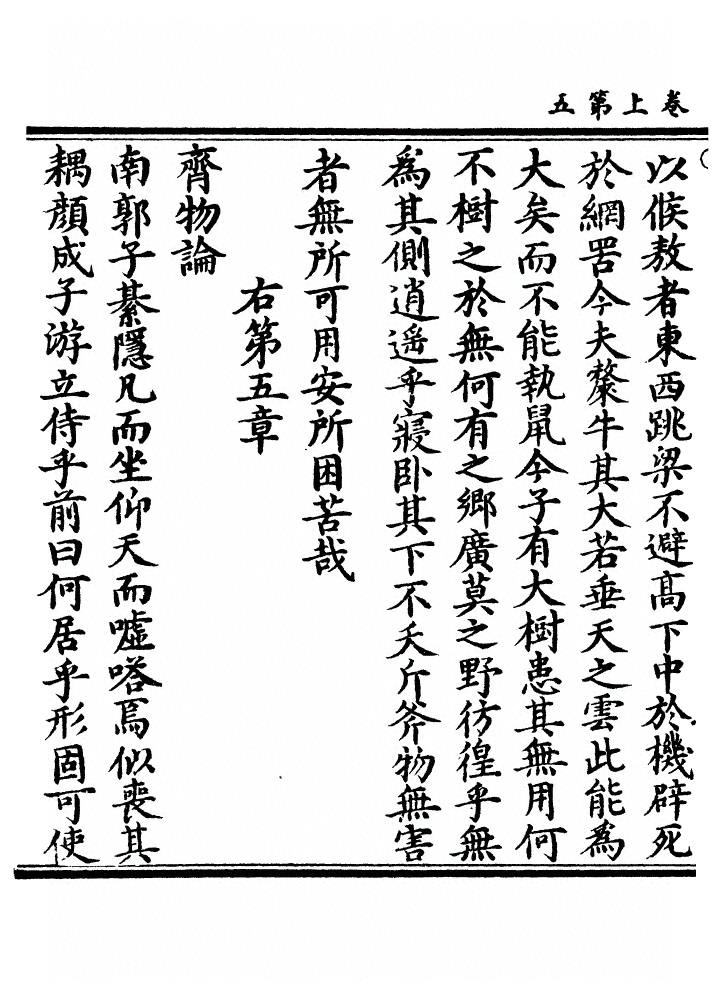 卷上第五
以候敖者東西跳梁不避髙下中於機辟死
於網罟今夫斄牛其大若垂天之雲此能為
大矣而不能執鼠今子有大樹患其無用何
不樹之於無何有之鄉廣莫之野彷徨乎無
為其側逍遥乎寢卧其下不夭斤斧物無害
者無所可用安所困苦哉
右第五章
齊物論
南郭子綦隱几而坐仰天而嘘嗒焉似喪其
耦顔成子游立侍乎前曰何居乎形固可使